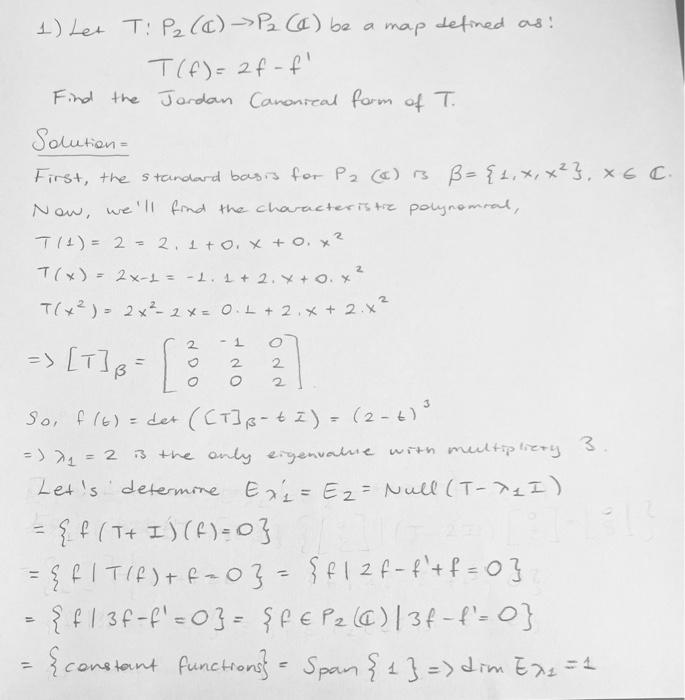 1) Let T: P₂(ℂ)→P₂(ℂ) be a map defined as:
T(f) = 2f - f'
Find the Jordan Canonical form of T.
Solution=
First, the standard basis for P₂(ℂ) is β = {1, x, x²}, x ∈ ℂ.
Now, we'll find the characteristic polynomial,
T(1) = 2 = 2.1 + 0.x + 0.x²
T(x) = 2x-1 = -1.1 + 2.x + 0.x²
T(x²) = 2x² - 2x = 0.1 + 2.x + 2.x²
=> [T]β = [2 -1 0
0 2 2
0 0 2]
So, f(t) = det([T]β - tI) = (2-t)³
=> λ₁ = 2 is the only eigenvalue with multiplicity 3.
Let's determine Eλ₁ = E₂ = Null(T - λ₁I)
= {f(T+I)(f)=0}
= {f | T(f) + f = 0} = {f | 2f - f' + f = 0}
= {f | 3f - f' = 0} = {f ∈ P₂(ℂ) | 3f - f' = 0}
= {constant functions} = Span{1} => dim Eλ₁ = 1